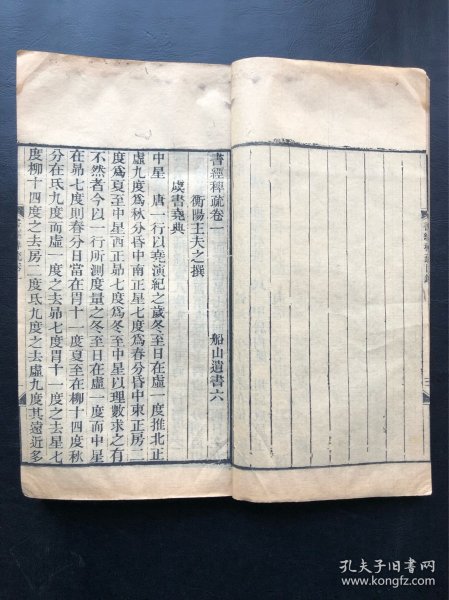 書經稗疏卷一 船山遺書六
衡陽王夫之撰
虞書堯典
中星 唐一行以堯演紀之歲冬至日在虛一度推北正
虛九度爲秋分昏中南正星七度爲春分昏中東正房二
度爲夏至中星西正昴七度爲冬至中星以理數求之有
不然者今以一行所測度量之冬至日在虛一度而中星
在昴七度則春分日當在胃十一度夏至在柳十四度秋
分在氐九度而虛一度之去昴七度胃十一度之去星七
度柳十四度之去房二度氐九度之去虛九度其遠近多
孔夫子旧书网
www.kongfz.com